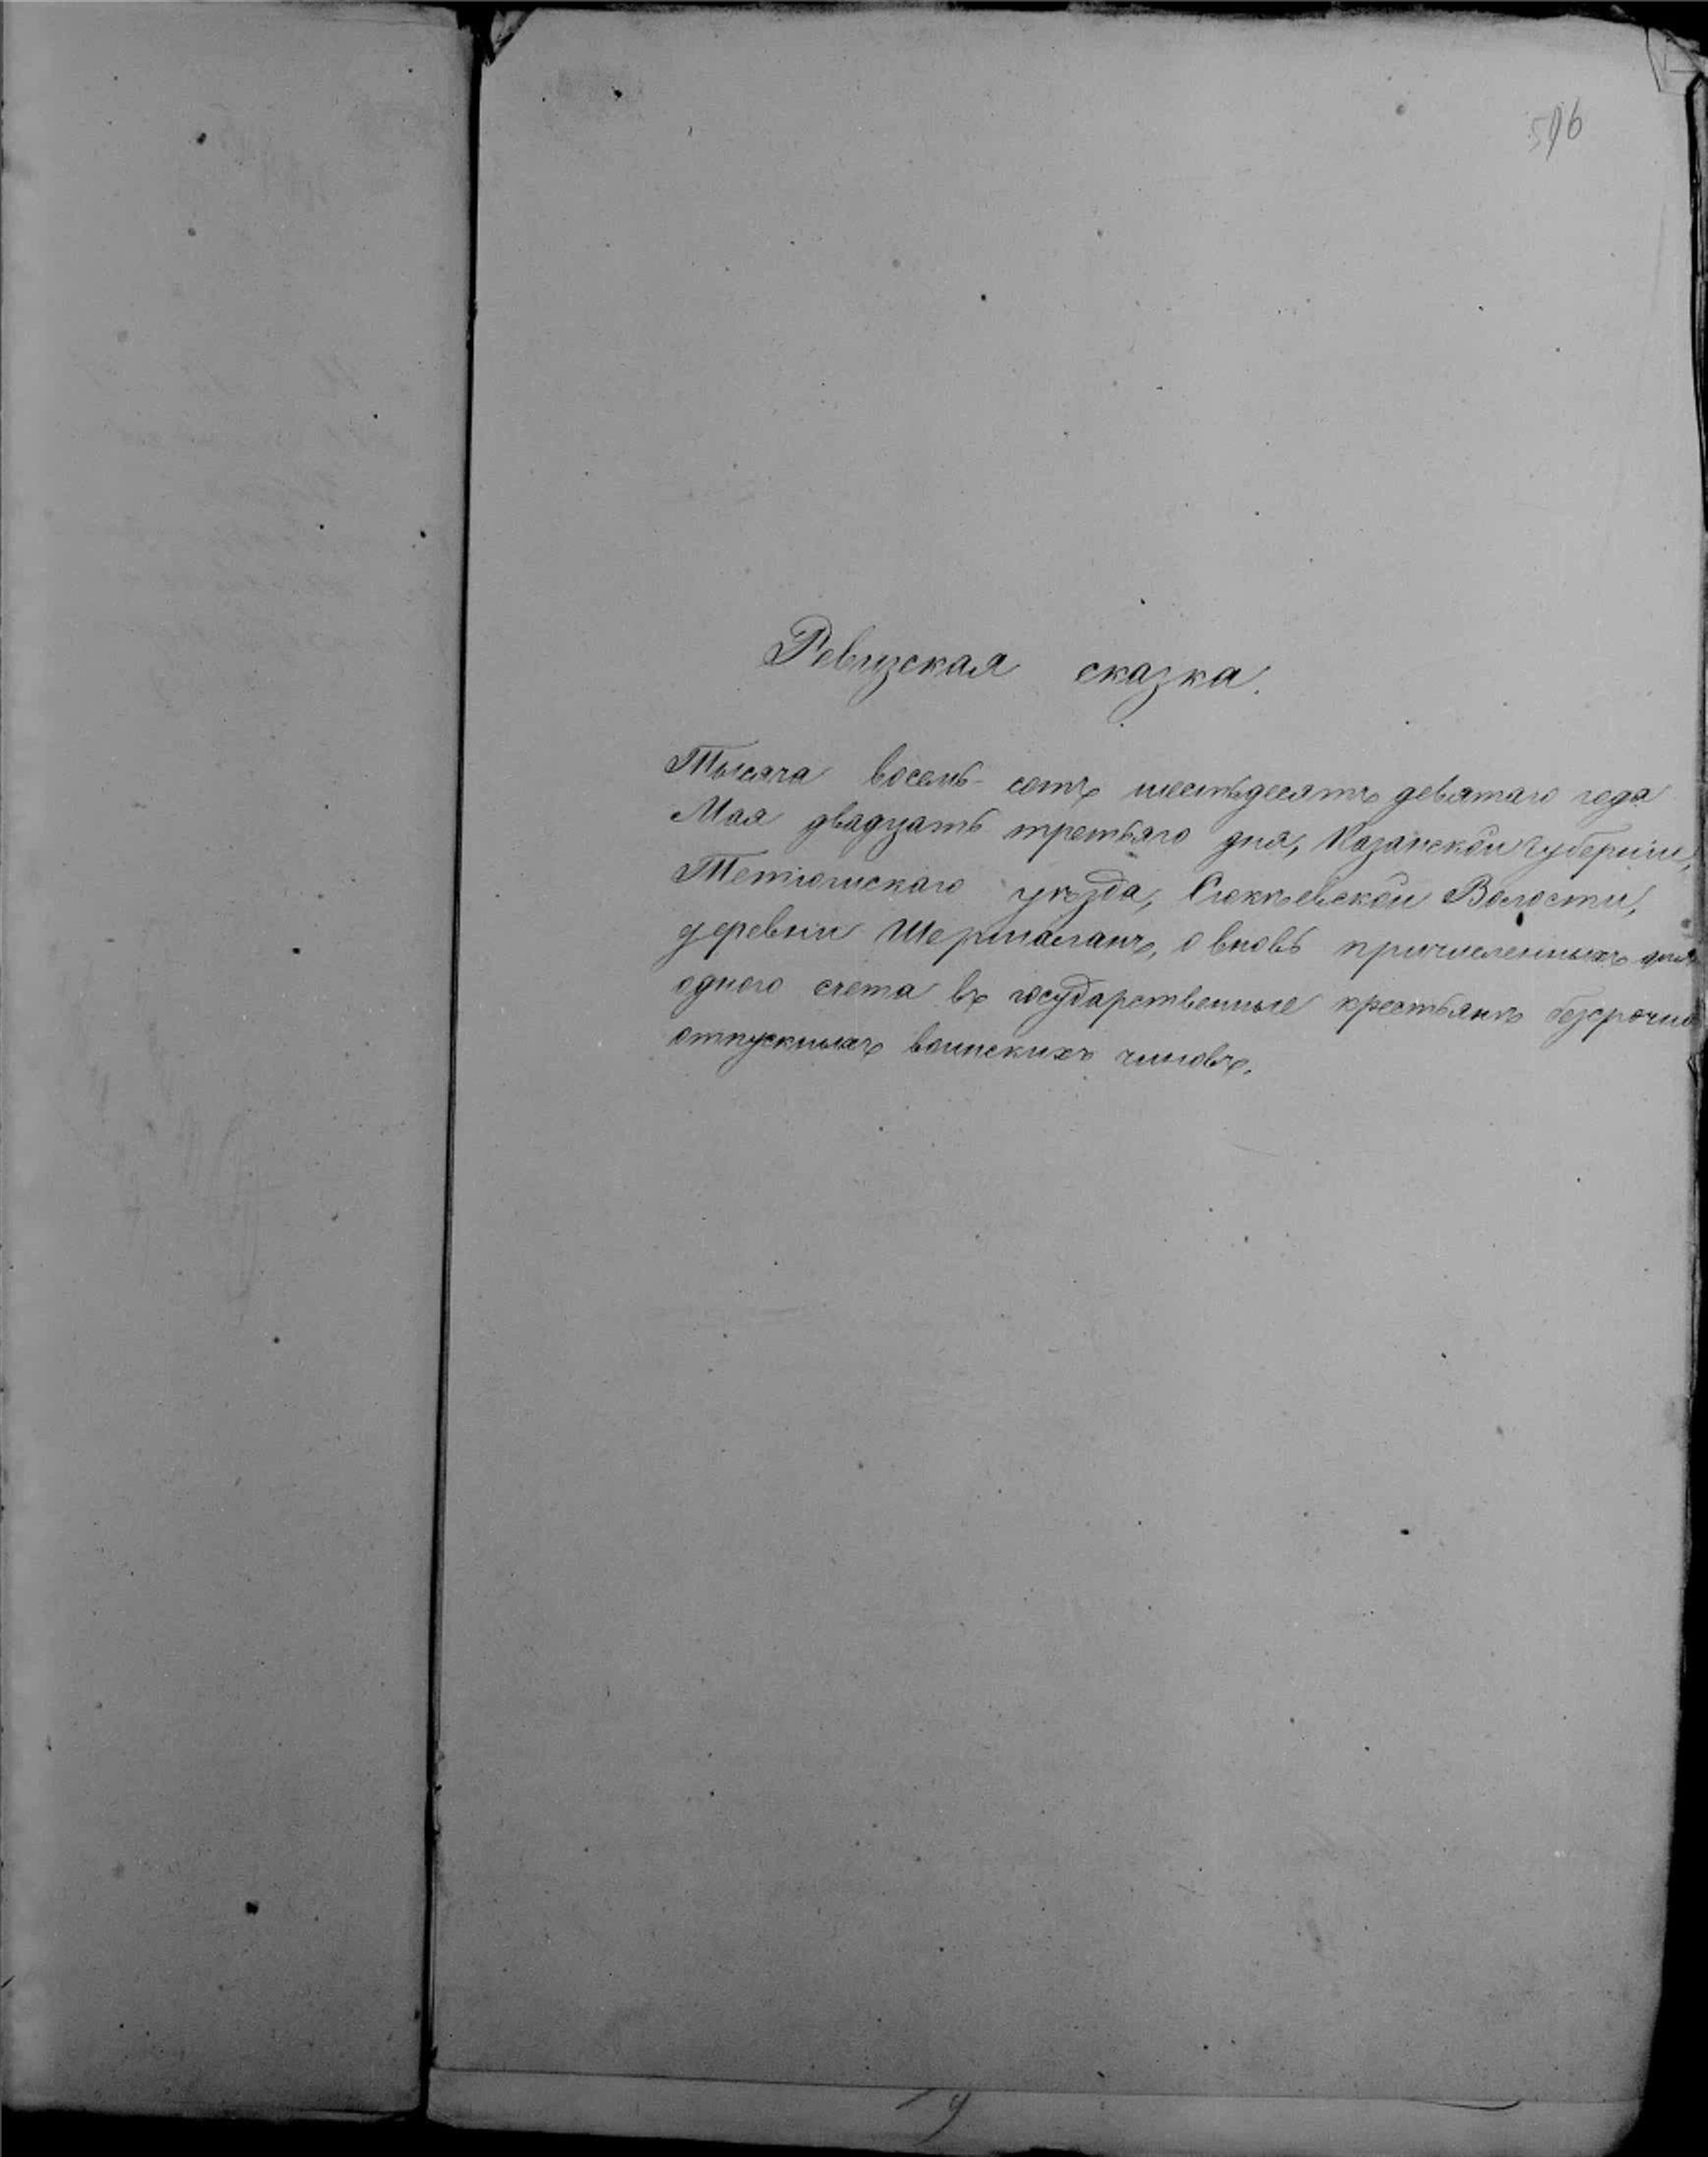 596
Ревизская сказка.
Тысяча восемь сотъ шестьдесятъ девятаго года
Мая двадцать третьяго дня, Казанской Губерніи,
Тетюшскаго уѣзда, Сюкѣевской Волости,
деревни Шермаланъ, о вновь причисленныхъ для
одного счета въ государственные крестьянъ безсрочно
отпускныхъ воинскихъ чиновъ.